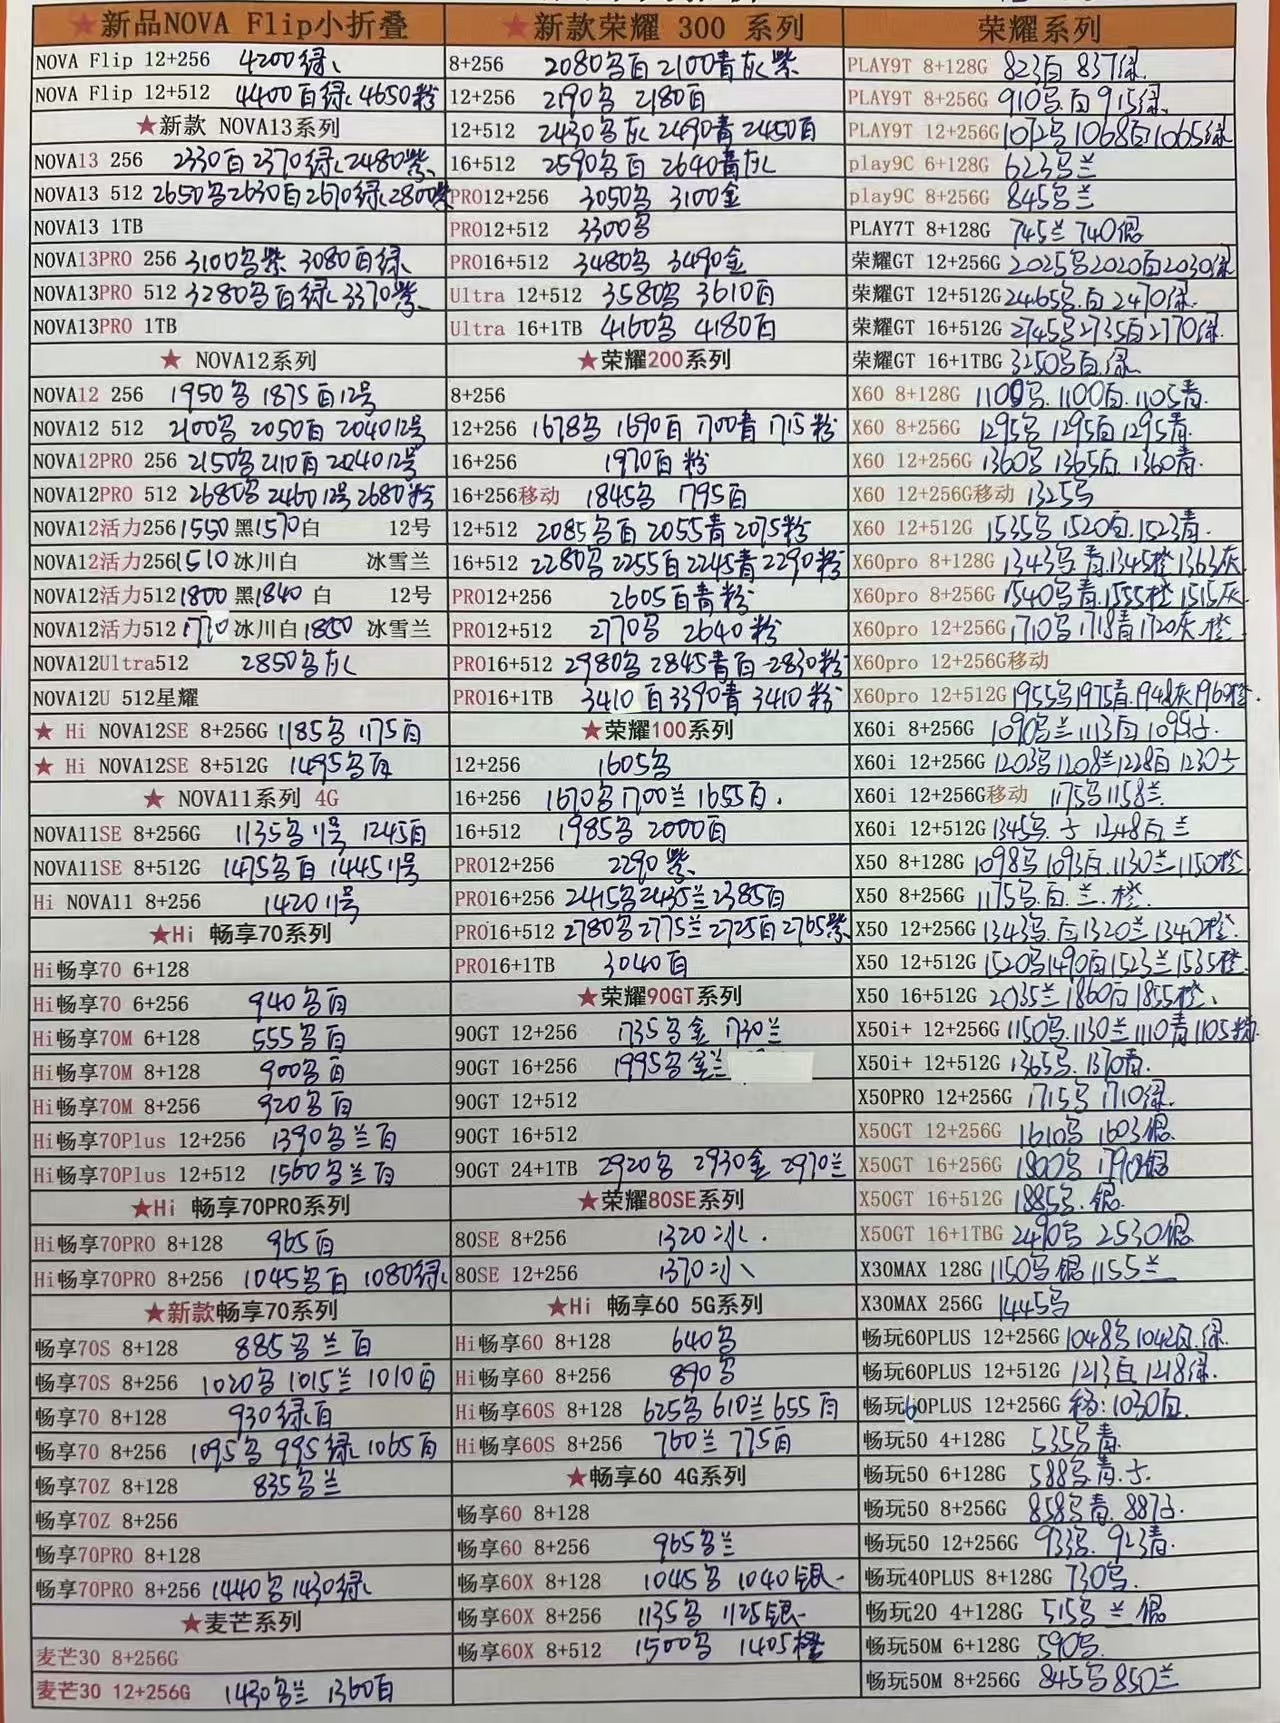 ★新品NOVA Flip小折叠
NOVA Flip 12+256 4200绿
NOVA Flip 12+512 4400白绿 4650粉
★新款 NOVA13系列
NOVA13 256 2330白 2370绿 2480紫
NOVA13 512 2650黑 2630白 2670绿 2800紫
NOVA13 1TB
NOVA13PRO 256 3100黑紫 3080白绿
NOVA13PRO 512 3280黑白绿 3370紫
NOVA13PRO 1TB
★ NOVA12系列
NOVA12 256 1950黑 1875白12号
NOVA12 512 2100黑 2050白 2040 12号
NOVA12PRO 256 2150黑 2110白 2040 12号
NOVA12PRO 512 2680黑 2460 12号 2680粉
NOVA12活力256 1550黑 1570白 12号
NOVA12活力256 1510冰川白 冰雪兰
NOVA12活力512 1800黑 1840白 12号
NOVA12活力512 1770冰川白 1850 冰雪兰
NOVA12Ultra512 2850黑灰
NOVA12U 512星耀
★ Hi NOVA12SE 8+256G 1185黑 1175白
★ Hi NOVA12SE 8+512G 1495黑白
★ NOVA11系列 4G
NOVA11SE 8+256G 1135黑11号 1245白
NOVA11SE 8+512G 1475黑白 1445 11号
Hi NOVA11 8+256 1420 11号
★Hi 畅享70系列
Hi畅享70 6+128
Hi畅享70 6+256 940黑白
Hi畅享70M 6+128 555黑白
Hi畅享70M 8+128 900黑白
Hi畅享70M 8+256 920黑白
Hi畅享70Plus 12+256 1390黑兰白
Hi畅享70Plus 12+512 1560黑兰白
★Hi 畅享70PRO系列
Hi畅享70PRO 8+128 965白
Hi畅享70PRO 8+256 1045黑白 1080绿
★新款畅享70系列
畅享70S 8+128 885黑兰白
畅享70S 8+256 1020黑 1015兰 1010白
畅享70 8+128 930绿白
畅享70 8+256 1095黑 995绿 1065白
畅享70Z 8+128 835黑兰
畅享70Z 8+256
畅享70PRO 8+128
畅享70PRO 8+256 1440黑 1430绿
★麦芒系列
麦芒30 8+256G
麦芒30 12+256G 1430黑兰 1360白
★新款荣耀 300 系列
8+256 2080黑白 2100青灰紫
12+256 2190黑 2180白
12+512 2430黑灰 2490青 2450白
16+512 2590黑白 2640青灰
PRO12+256 3050黑 3100金
PRO12+512 3300黑
PRO16+512 3480黑 3490金
Ultra 12+512 3580黑 3610白
Ultra 16+1TB 4160黑 4180白
★荣耀200系列
8+256
12+256 1678黑 1690白 1700青 1715粉
16+256 1970白粉
16+256移动 1845黑 1795白
12+512 2085黑白 2055青 2075粉
16+512 2280黑 2255白 2245青 2290粉
PRO12+256 2605白青粉
PRO12+512 2770黑 2640粉
PRO16+512 2980黑 2845青白 2830粉
PRO16+1TB 3410白 3390青 3410粉
★荣耀100系列
12+256 1605黑
16+256 1670黑 1700兰 1655白
16+512 1985黑 2000白
PRO12+256 2290紫
PRO16+256 2415黑 2435兰 2385白
PRO16+512 2780黑 2775兰 2725白 2765紫
PRO16+1TB 3040白
★荣耀90GT系列
90GT 12+256 1735黑金 1730兰
90GT 16+256 1995黑金兰
90GT 12+512
90GT 16+512
90GT 24+1TB 2920黑 2930金 2970兰
★荣耀80SE系列
80SE 8+256 1320冰
80SE 12+256 1370冰
★Hi 畅享60 5G系列
Hi畅享60 8+128 640黑
Hi畅享60 8+256 890黑
Hi畅享60S 8+128 625黑 610兰 655白
Hi畅享60S 8+256 760兰 775白
★畅享60 4G系列
畅享60 8+128
畅享60 8+256 965黑兰
畅享60X 8+128 1045黑 1040银
畅享60X 8+256 1135黑 1125银
畅享60X 8+512 1500黑 1405橙
荣耀系列
PLAY9T 8+128G 823白 837绿
PLAY9T 8+256G 910黑白 915绿
PLAY9T 12+256G 1072黑 1068白 1065绿
play9C 6+128G 623黑兰
play9C 8+256G 845黑兰
PLAY7T 8+128G 745兰 740银
荣耀GT 12+256G 2025黑 2020白 2030绿
荣耀GT 12+512G 2465黑.白 2470绿
荣耀GT 16+512G 2745黑 2735白 2770绿
荣耀GT 16+1TBG 3250黑白.绿
X60 8+128G 黑.1100白.1105青
X60 8+256G 1295黑 1295白 1295青
X60 12+256G 1360黑 1365白.1360青
X60 12+256G移动 1325黑
X60 12+512G 1535黑 1520白.1523青
X60pro 8+128G 1343黑 青.1345橙 1363灰
X60pro 8+256G 1540黑青.1555橙 1515灰
X60pro 12+256G 1710黑 1718青 1720灰.橙
X60pro 12+256G移动
X60pro 12+512G 1955黑 1975青.1948灰 1960橙
X60i 8+256G 1090黑兰 1113白 1095
X60i 12+256G 1203黑 1208兰 1228白 1230
X60i 12+256G移动 1175黑 1158兰
X60i 12+512G 1345黑. 1248白.兰
X50 8+128G 1098黑 1093白.1130兰 1150橙
X50 8+256G 1175黑.白.兰.橙
X50 12+256G 1343黑.白 1320兰 1340橙
X50 12+512G 1520黑 1490白 1523兰 1535橙
X50 16+512G 2035兰 1860白 1855橙
X50i+ 12+256G 1150黑.1130兰 1110青 1105粉
X50i+ 12+512G 1365黑.1370青
X50PRO 12+256G 1715黑 1710绿
X50GT 12+256G 1610黑 1603银
X50GT 16+256G 1800黑 1790银
X50GT 16+512G 1885黑.银
X50GT 16+1TBG 2490黑 2530银
X30MAX 128G 1150黑 银 1155兰
X30MAX 256G 1445黑
畅玩60PLUS 12+256G 1048黑 1042白.绿
畅玩60PLUS 12+512G 1213白 1218绿
畅玩60PLUS 12+256G :1030白
畅玩50 4+128G 535黑青
畅玩50 6+128G 588黑青.
畅玩50 8+256G 858黑青.887
畅玩50 12+256G 933黑.923青
畅玩40PLUS 8+128G 730黑
畅玩20 4+128G 515黑 兰 银
畅玩50M 6+128G 590黑
畅玩50M 8+256G 845黑 850兰